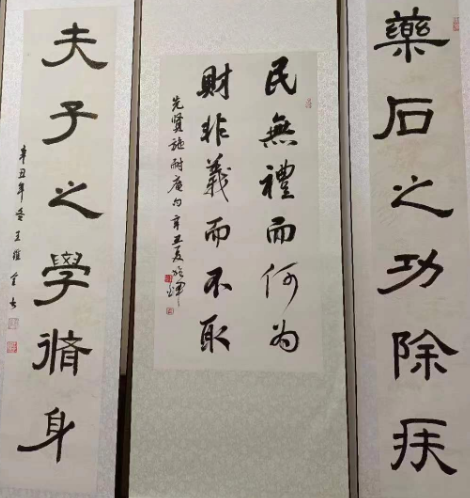 藥石之功除疾
民無禮而何為
財非義而不取
先賢施耐庵句辛丑夏
夫子之學脩身
辛丑年王維